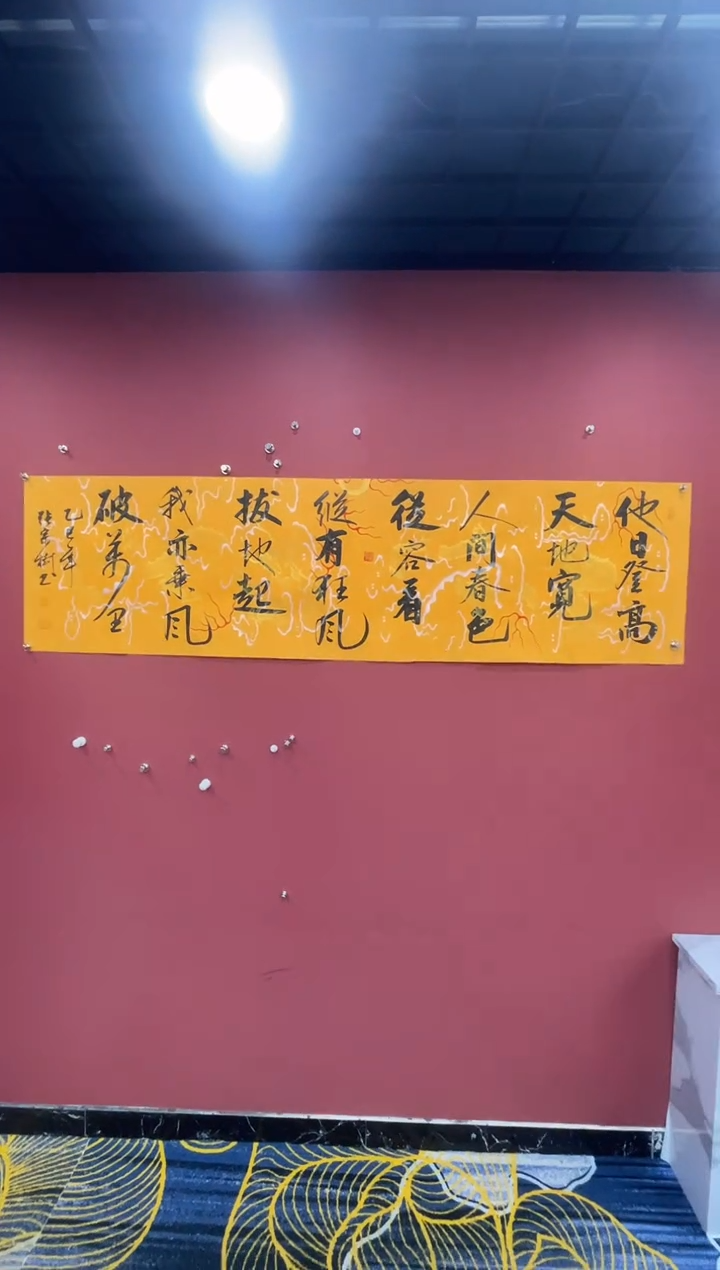 他日登高
天地寬
人间春色
從容看
縱有狂风
拔地起
我亦乘风
破萬里
乙巳年